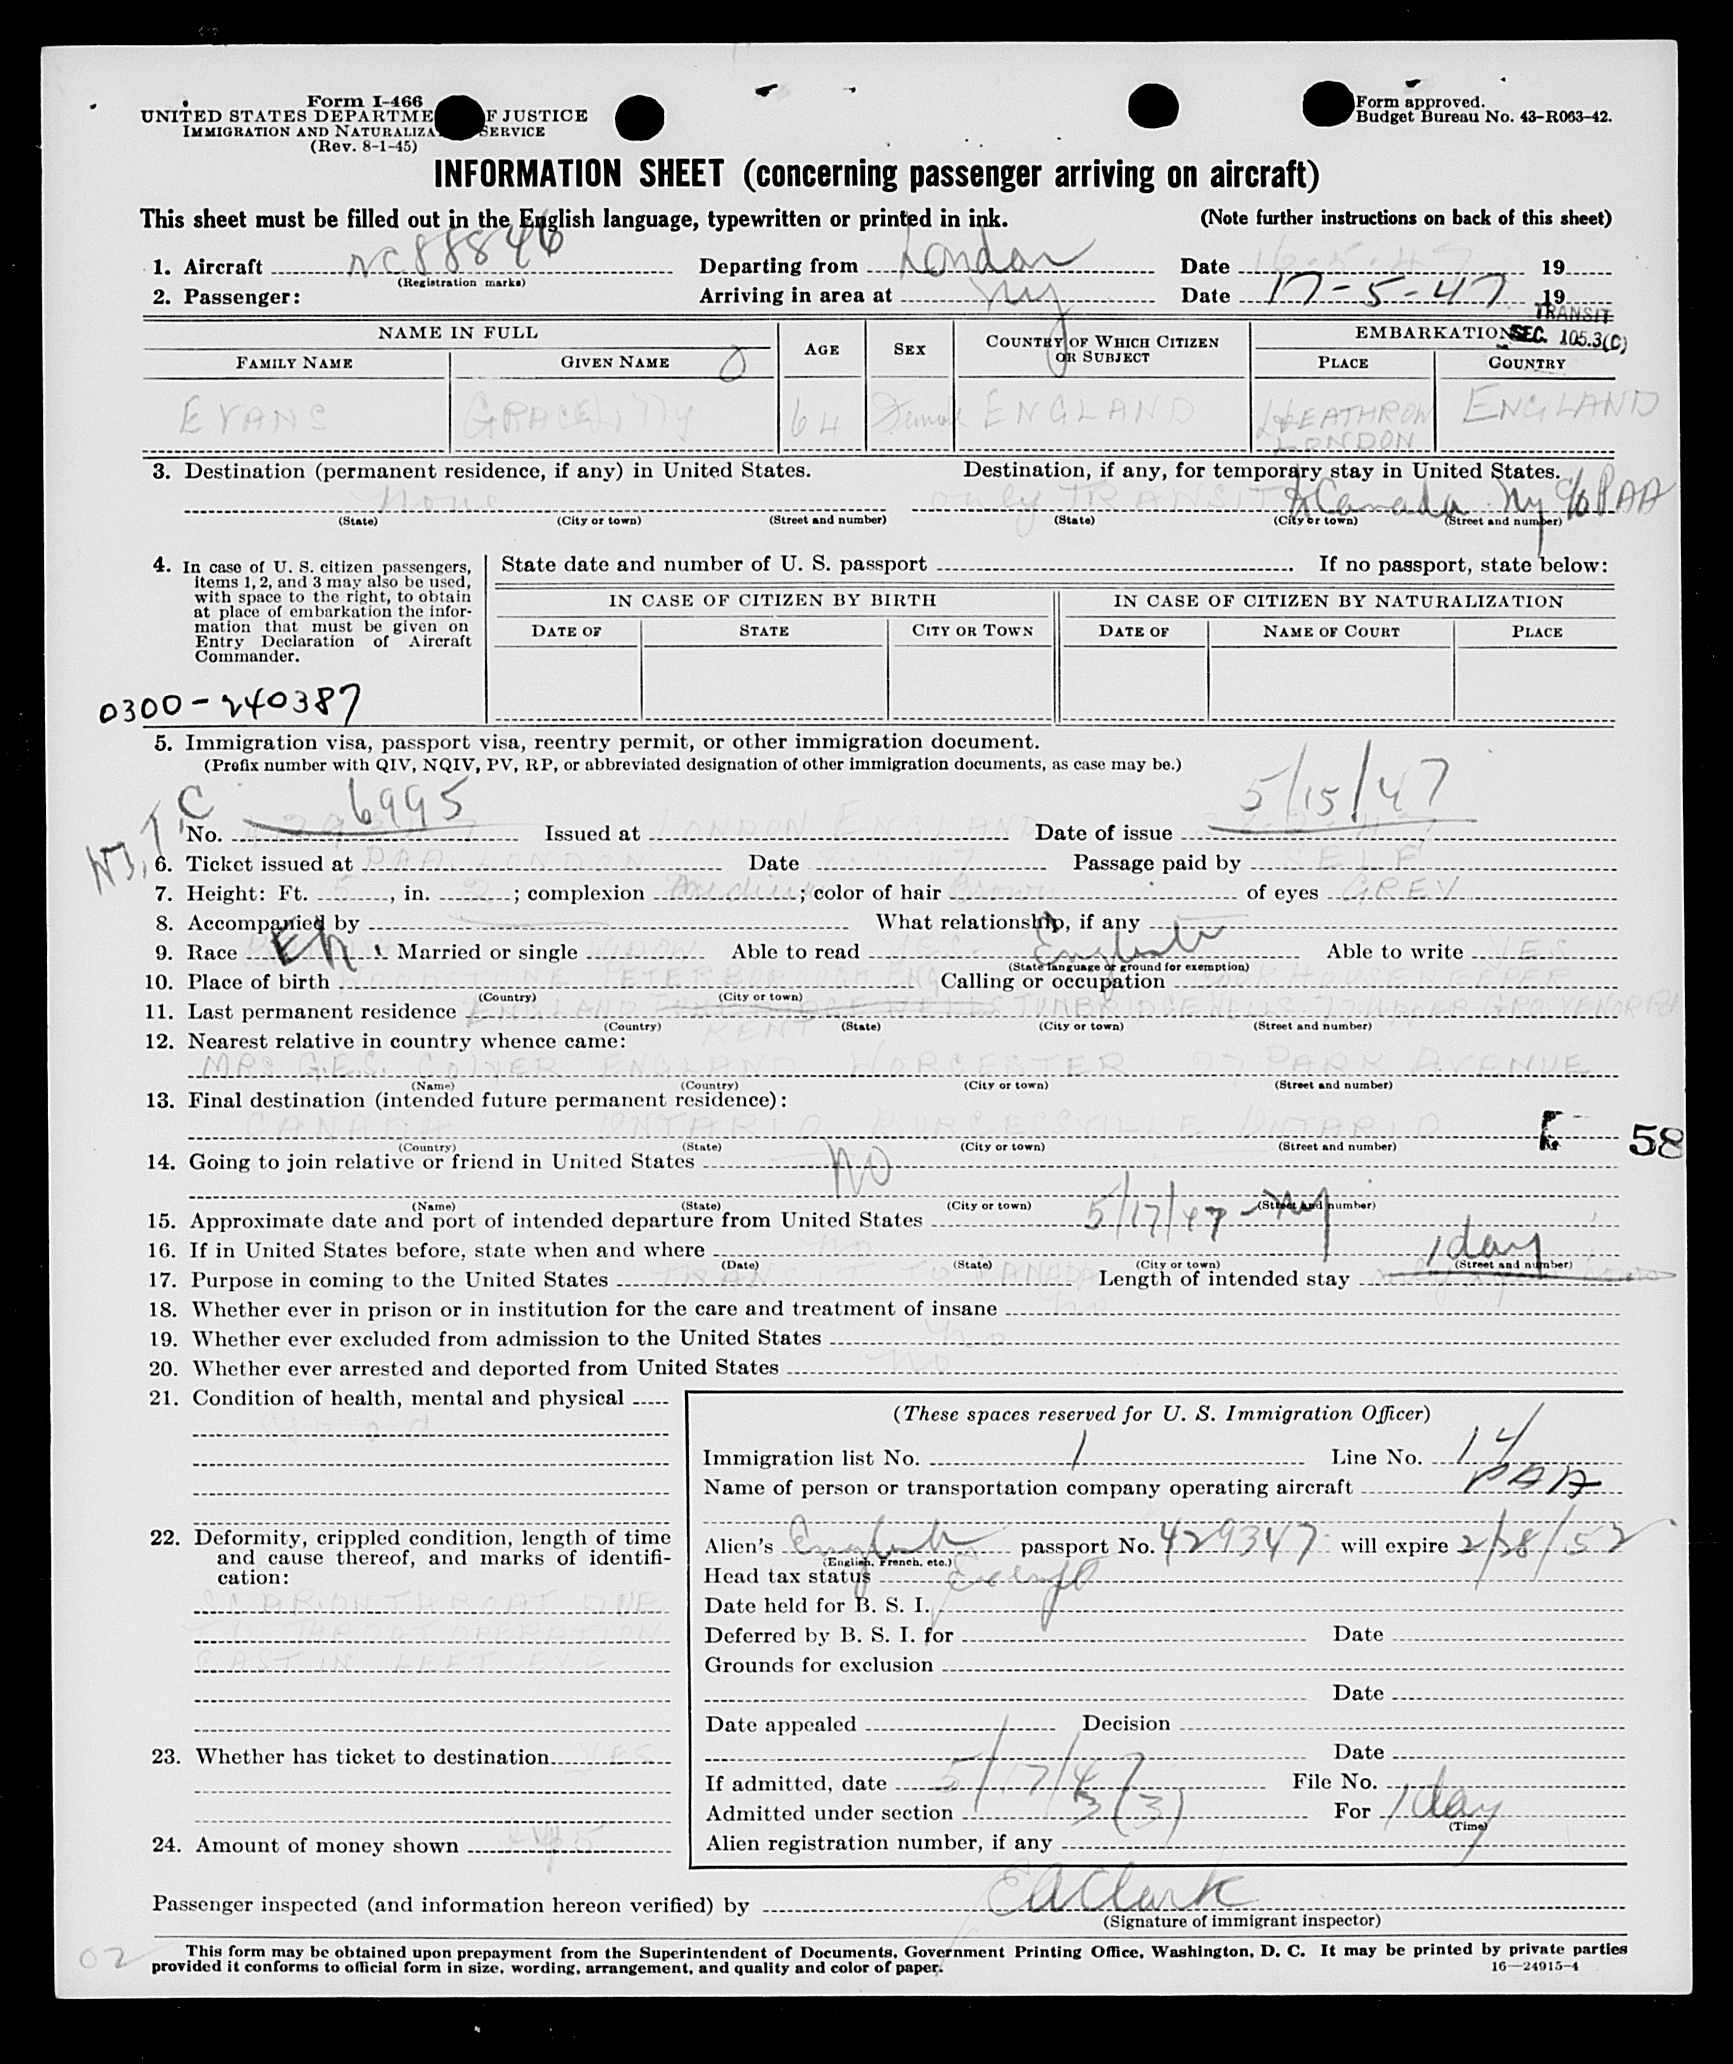 Form I-466
UNITED STATES DEPARTME F JUSTICE
IMMIGRATION AND NATURALIZA SERVICE
(Rev. 8-1-45)
Form approved.
Budget Bureau No. 43-R063-42.
INFORMATION SHEET (concerning passenger arriving on aircraft)
This sheet must be filled out in the English language, typewritten or printed in ink. (Note further instructions on back of this sheet)
1. Aircraft NC88846 Departing from London Date 16-5-47 19
(Registration marks)
2. Passenger: Arriving in area at NY Date 17-5-47 19
TRANSIT
SEC. 105.3(C)
NAME IN FULL AGE SEX COUNTRY OF WHICH CITIZEN OR SUBJECT EMBARKATION
FAMILY NAME GIVEN NAME PLACE COUNTRY
EVANS GRACE Lilly 64 Female ENGLAND HEATHROW LONDON ENGLAND
3. Destination (permanent residence, if any) in United States. Destination, if any, for temporary stay in United States.
None only TRANSIT to Canada NY c/o PAA
(State) (City or town) (Street and number) (State) (City or town) (Street and number)
4. In case of U. S. citizen passengers, items 1, 2, and 3 may also be used, with space to the right, to obtain at place of embarkation the information that must be given on Entry Declaration of Aircraft Commander.
State date and number of U. S. passport If no passport, state below:
IN CASE OF CITIZEN BY BIRTH IN CASE OF CITIZEN BY NATURALIZATION
DATE OF STATE CITY OR TOWN DATE OF NAME OF COURT PLACE
0300-240387
5. Immigration visa, passport visa, reentry permit, or other immigration document.
(Prefix number with QIV, NQIV, PV, RP, or abbreviated designation of other immigration documents, as case may be.)
No. 6995 Issued at LONDON ENGLAND Date of issue 5/15/47
6. Ticket issued at PAA LONDON Date Passage paid by SELF
7. Height: Ft. 5, in. 2; complexion Medium; color of hair Brown of eyes GREY
8. Accompanied by What relationship, if any
9. Race Eng. Married or single WIDOW Able to read YES English Able to write YES
(State language or ground for exemption)
10. Place of birth WOODSTONE PETERBOROUGH ENG Calling or occupation COOK HOUSEKEEPER
(Country) (City or town)
11. Last permanent residence ENGLAND KENT TUNBRIDGE WELLS UPPER GROSVENOR Rd
(Country) (State) (City or town) (Street and number)
12. Nearest relative in country whence came:
MRS G.E.S. COLYER ENGLAND WORCESTER 27 PARK AVENUE
(Name) (Country) (City or town) (Street and number)
13. Final destination (intended future permanent residence):
CANADA ONTARIO BURGESSVILLE ONTARIO
(Country) (State) (City or town) (Street and number)
58
14. Going to join relative or friend in United States NO
(Name) (State) (City or town) (Street and number)
15. Approximate date and port of intended departure from United States 5/17/47 - NY
16. If in United States before, state when and where no
(Date) (State) (City or town) (Street and number)
17. Purpose in coming to the United States TRANSIT TO CANADA Length of intended stay 1 day
18. Whether ever in prison or in institution for the care and treatment of insane no
19. Whether ever excluded from admission to the United States No
20. Whether ever arrested and deported from United States No
21. Condition of health, mental and physical
Good
22. Deformity, crippled condition, length of time and cause thereof, and marks of identification:
SCAR ON THROAT DUE
TO THROAT OPERATION
CAST IN LEFT EYE
23. Whether has ticket to destination YES
24. Amount of money shown
(These spaces reserved for U. S. Immigration Officer)
Immigration list No. 1 Line No. 14
Name of person or transportation company operating aircraft PAA
Alien's English passport No. 429347 will expire 2/28/52
(English, French, etc.)
Head tax status Exempt
Date held for B. S. I.
Deferred by B. S. I. for Date
Grounds for exclusion
Date
Date appealed Decision
Date
If admitted, date 5/17/47 File No.
Admitted under section 3(3) For 1 day
(Time)
Alien registration number, if any
Passenger inspected (and information hereon verified) by EA Clark
(Signature of immigrant inspector)
02
This form may be obtained upon prepayment from the Superintendent of Documents, Government Printing Office, Washington, D. C. It may be printed by private parties
provided it conforms to official form in size, wording, arrangement, and quality and color of paper.
16—24915-4